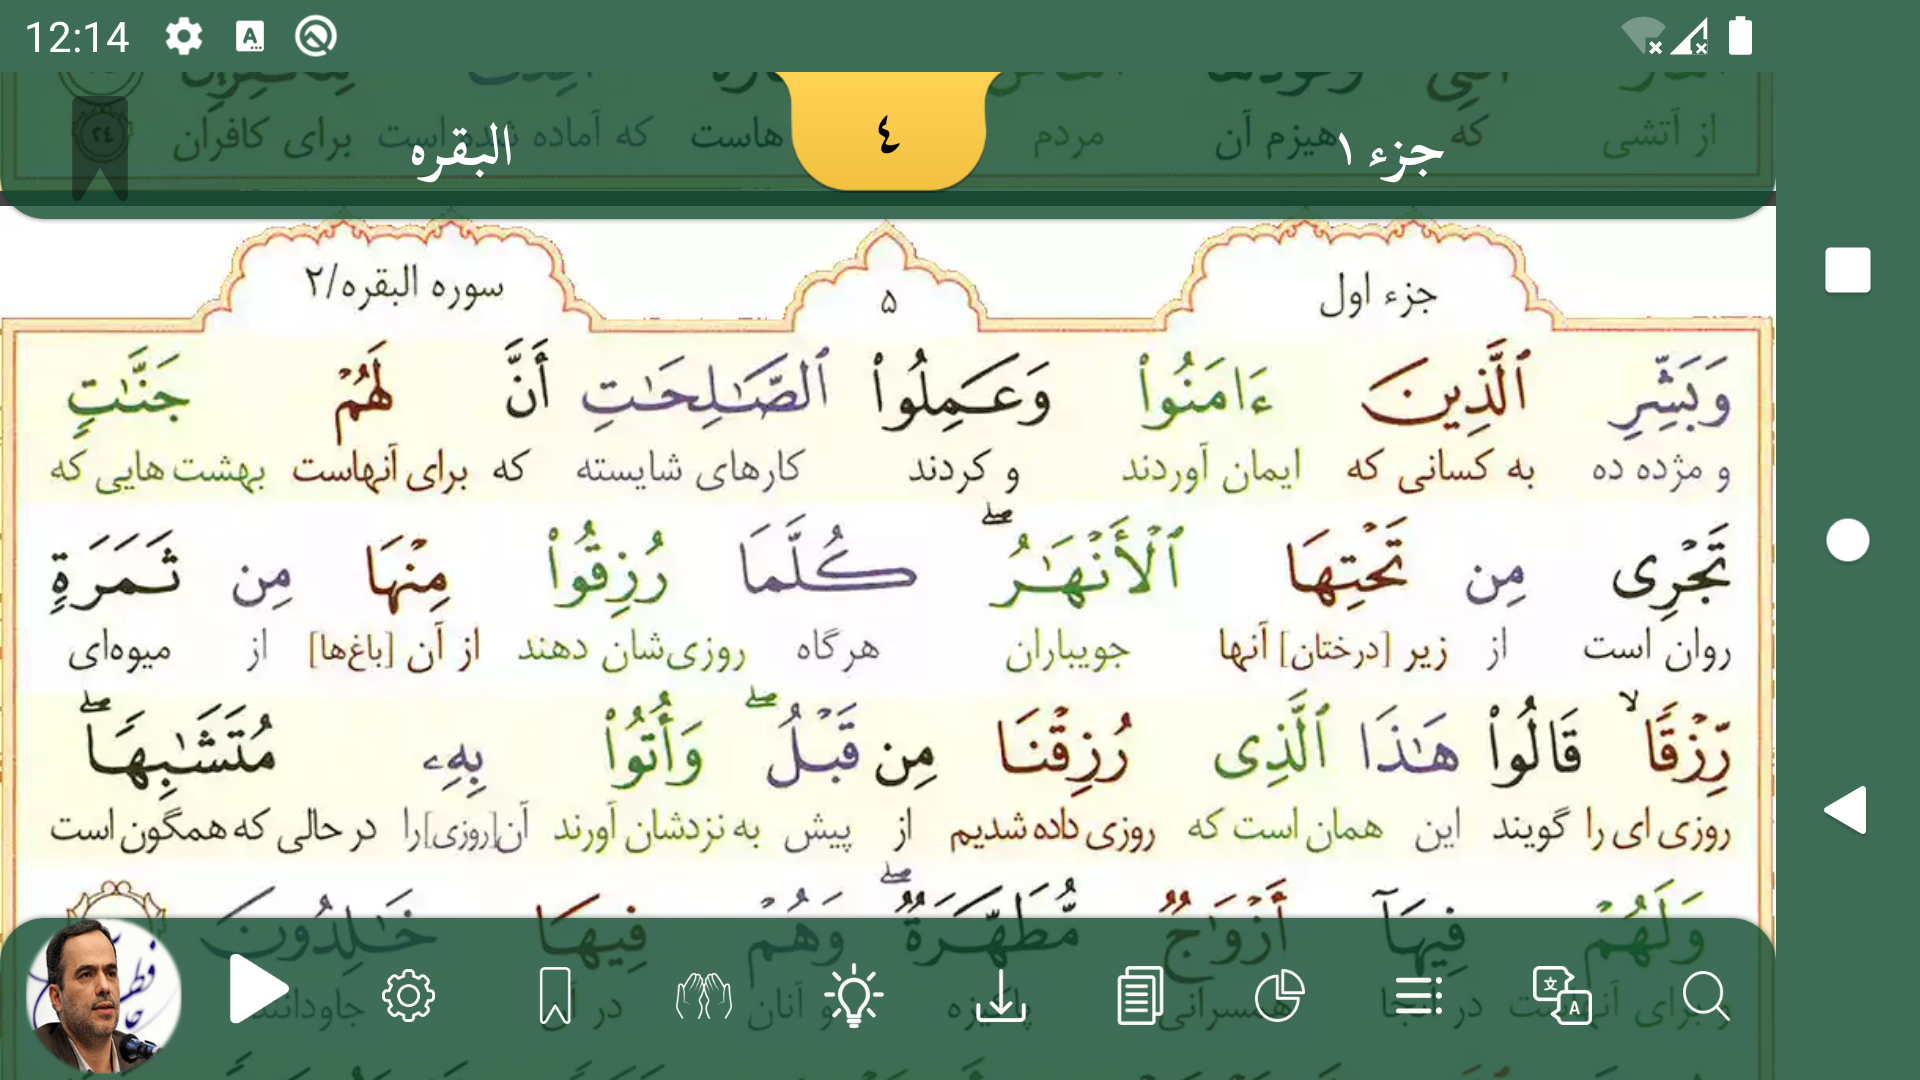 12:14
از آتشی که هیزم آن مردم هاست که آماده شده است برای کافران ٢٤
جزء ١ ٤ البقره
جزء اول ۵ سوره البقره/٢
وَبَشِّرِ ٱلَّذِينَ ءَامَنُواْ وَعَمِلُواْ ٱلصَّـٰلِحَـٰتِ أَنَّ لَهُمۡ جَنَّـٰتٍ
و مژده ده به کسانی که ایمان آوردند و کردند کارهای شایسته که برای آنهاست بهشت هایی که
تَجۡرِی مِن تَحۡتِهَا ٱلۡأَنۡهَـٰرُ ۖ كُلَّمَا رُزِقُواْ مِنۡهَا مِن ثَمَرَةٍ
روان است از زیر [درختان] آنها جویباران هرگاه روزی‌شان دهند از آن [باغ‌ها] از میوه‌ای
رِّزۡقًا ۙ قَالُواْ هَـٰذَا ٱلَّذِی رُزِقۡنَا مِن قَبۡلُ ۖ وَأُتُواْ بِهِۦ مُتَشَـٰبِهًا ۖ
روزی ای را گویند این همان است که روزی داده شدیم از پیش به نزدشان آورند آن[روزی]را در حالی که همگون است
وَلَهُمۡ فِيهَآ أَزۡوَٰجٌ مُّطَهَّرَةٌ ۖ وَهُمۡ فِيهَا خَـٰلِدُونَ
و برای آنهاست در آنجا همسرانی پاکیزه و آنان در آن